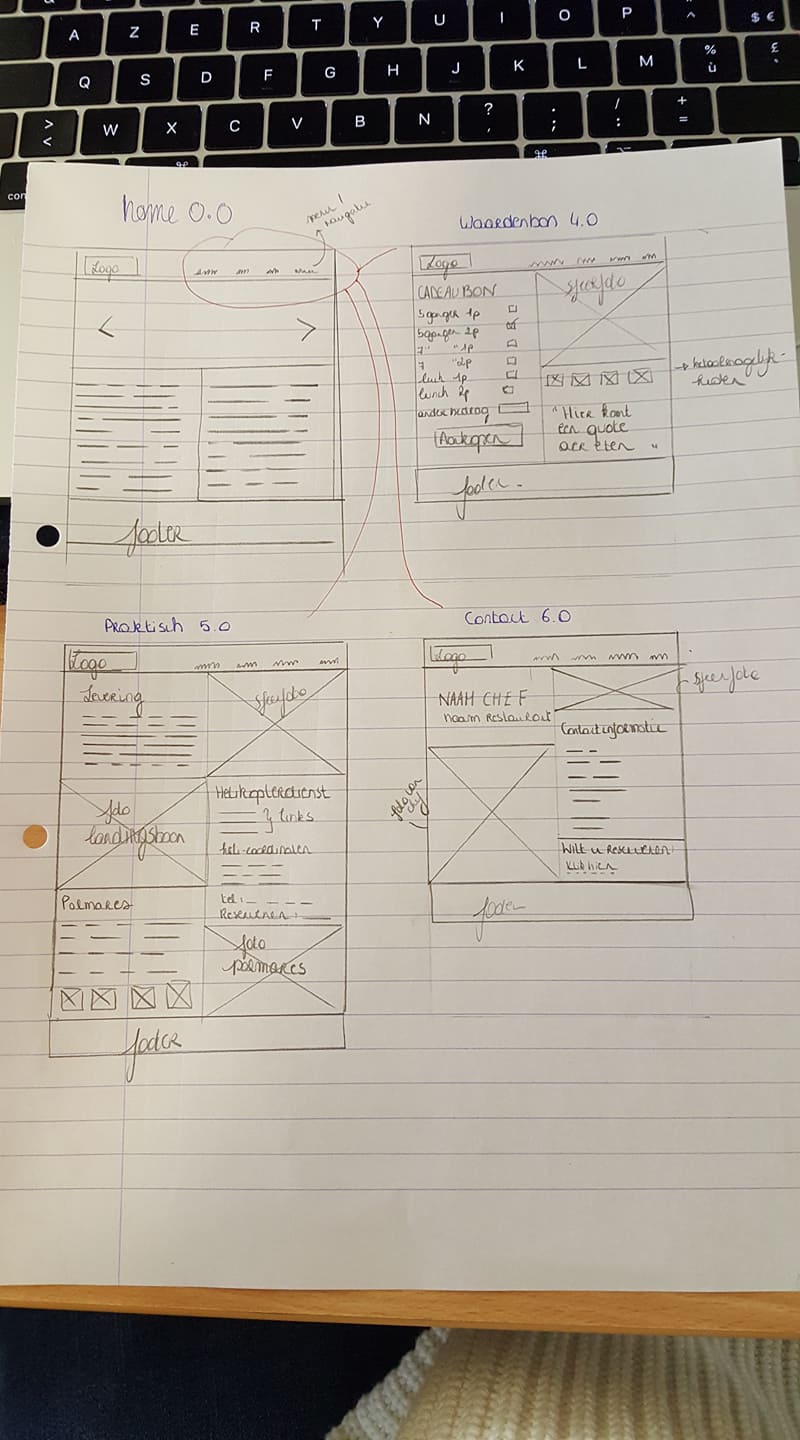 A Z E R T Y U I O P ^ $ €
Q S D F G H J K L M % ù £
> < W X C V B N ? , . ; / : + =
⌘ ⌘
con
home 0.0
menu /
navigatie
Logo
< >
footer
Waardenbon 4.0
Logo
CADEAUBON
5gangen 1p
5gangen 2p
7 " " 1p
7 " 2p
lunch 1p
lunch 2p
ander bedrag
Aankopen
sfeerfoto
→ betaalmogelijk-
heden
" Hier komt
een quote
over eten "
footer
Praktisch 5.0
Logo
Levering
sfeerfoto
foto
landingsbaan
Helikopterdienst
} links
heli-coördinaten
tel:
Reserveren:
Palmares
foto
palmares
footer
Contact 6.0
Logo
sfeerfoto
NAAM CHEF
naam Restaurant
Contactinformatie
foto van
Wilt u Reserveren:
klik hier
footer